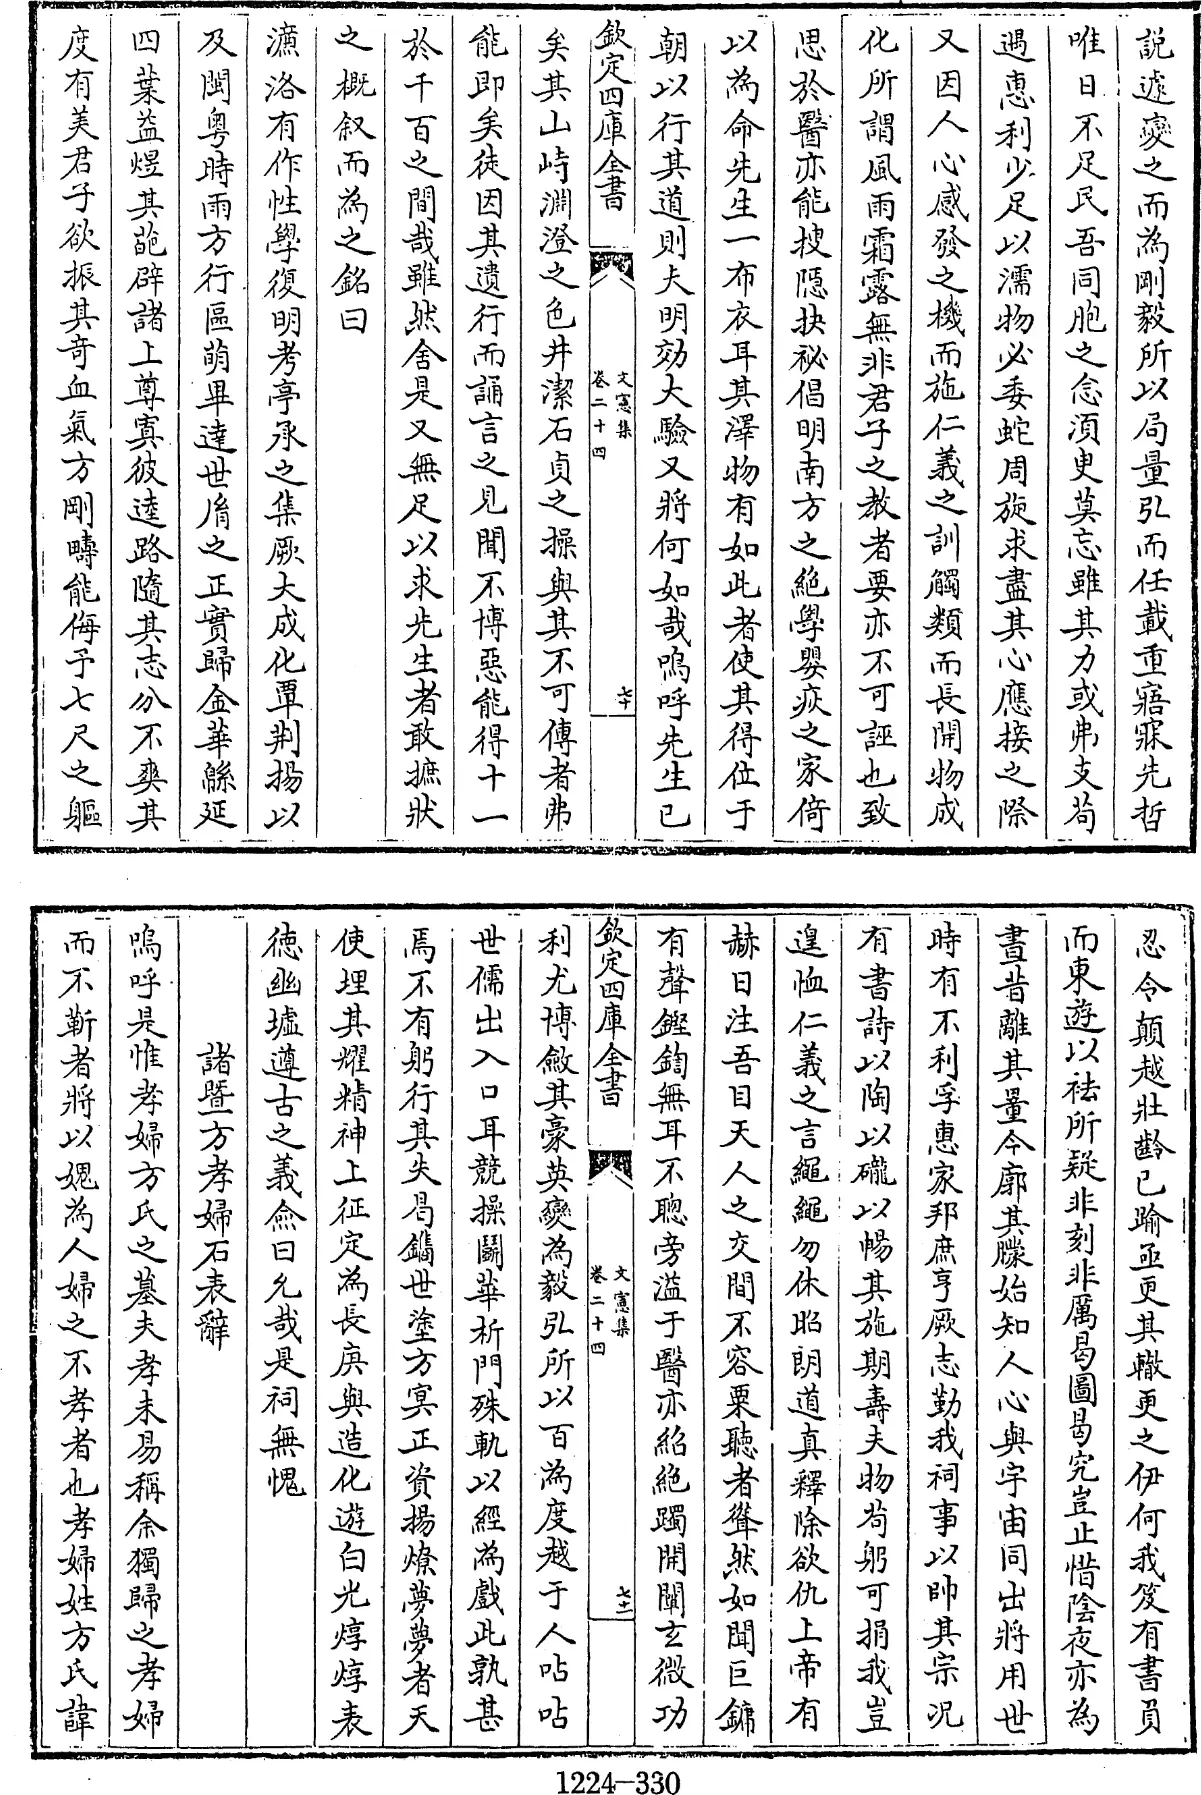 説遽變之而為剛毅所以局量弘而任載重寤寐先哲
唯日不足民吾同胞之念須臾莫忘雖其力或弗支茍
遇惠利少足以濡物必委蛇周旋求盡其心應接之際
又因人心感發之機而施仁義之訓觸類而長開物成
化所謂風雨霜露無非君子之教者要亦不可誣也致
思於醫亦能搜隠抉祕倡明南方之絶學嬰疾之家倚
以為命先生一布衣耳其澤物有如此者使其得位于
朝以行其道則夫明効大驗又將何如哉嗚呼先生已
欽定四庫全書
文憲集
卷二十四
七十
矣其山峙淵澄之色井潔石貞之操與其不可傳者弗
能即矣徒因其遺行而誦言之見聞不博惡能得十一
於千百之間哉雖然舍是又無足以求先生者敢摭狀
之概叙而為之銘曰
濂洛有作性學復明考亭承之集厥大成化覃荆揚以
及閩粤時雨方行區萌畢達世胄之正實歸金華緜延
四葉益煜其葩辟諸上尊寘彼逵路隨其志分不爽其
度有美君子欲振其竒血氣方剛疇能侮予七尺之軀
忍令顛越壯齡已踰亟更其轍更之伊何我笈有書員
而東遊以祛所疑非刻非厲曷圖曷究豈止惜陰夜亦為
晝昔離其量今廓其朦始知人心與宇宙同出將用世
時有不利孚惠家邦庶亨厥志勤我祠事以帥其宗況
有書詩以陶以礲以暢其施期壽夫物茍躬可捐我豈
遑恤仁義之言繩繩勿休昭朗道真釋除欲仇上帝有
赫日注吾目天人之交間不容粟聽者聳然如聞巨鏞
有聲鏗鍧無耳不聰旁溢于醫亦紹絶躅開闡玄微功
欽定四庫全書
文憲集
卷二十四
七十一
利尤博斂其豪英變為毅弘所以百為度越于人呫呫
世儒出入口耳競操鬬葉析門殊軌以經為戲此孰甚
焉不有躬行其失曷鐫世塗方冥正資揚燎夢夢者天
使埋其耀精神上征定為長庚與造化遊白光焞焞表
德幽墟遵古之義僉曰允哉是祠無愧
諸暨方孝婦石表辭
嗚呼是惟孝婦方氏之墓夫孝未易稱余獨歸之孝婦
而不靳者將以媿為人婦之不孝者也孝婦姓方氏諱
1224—330